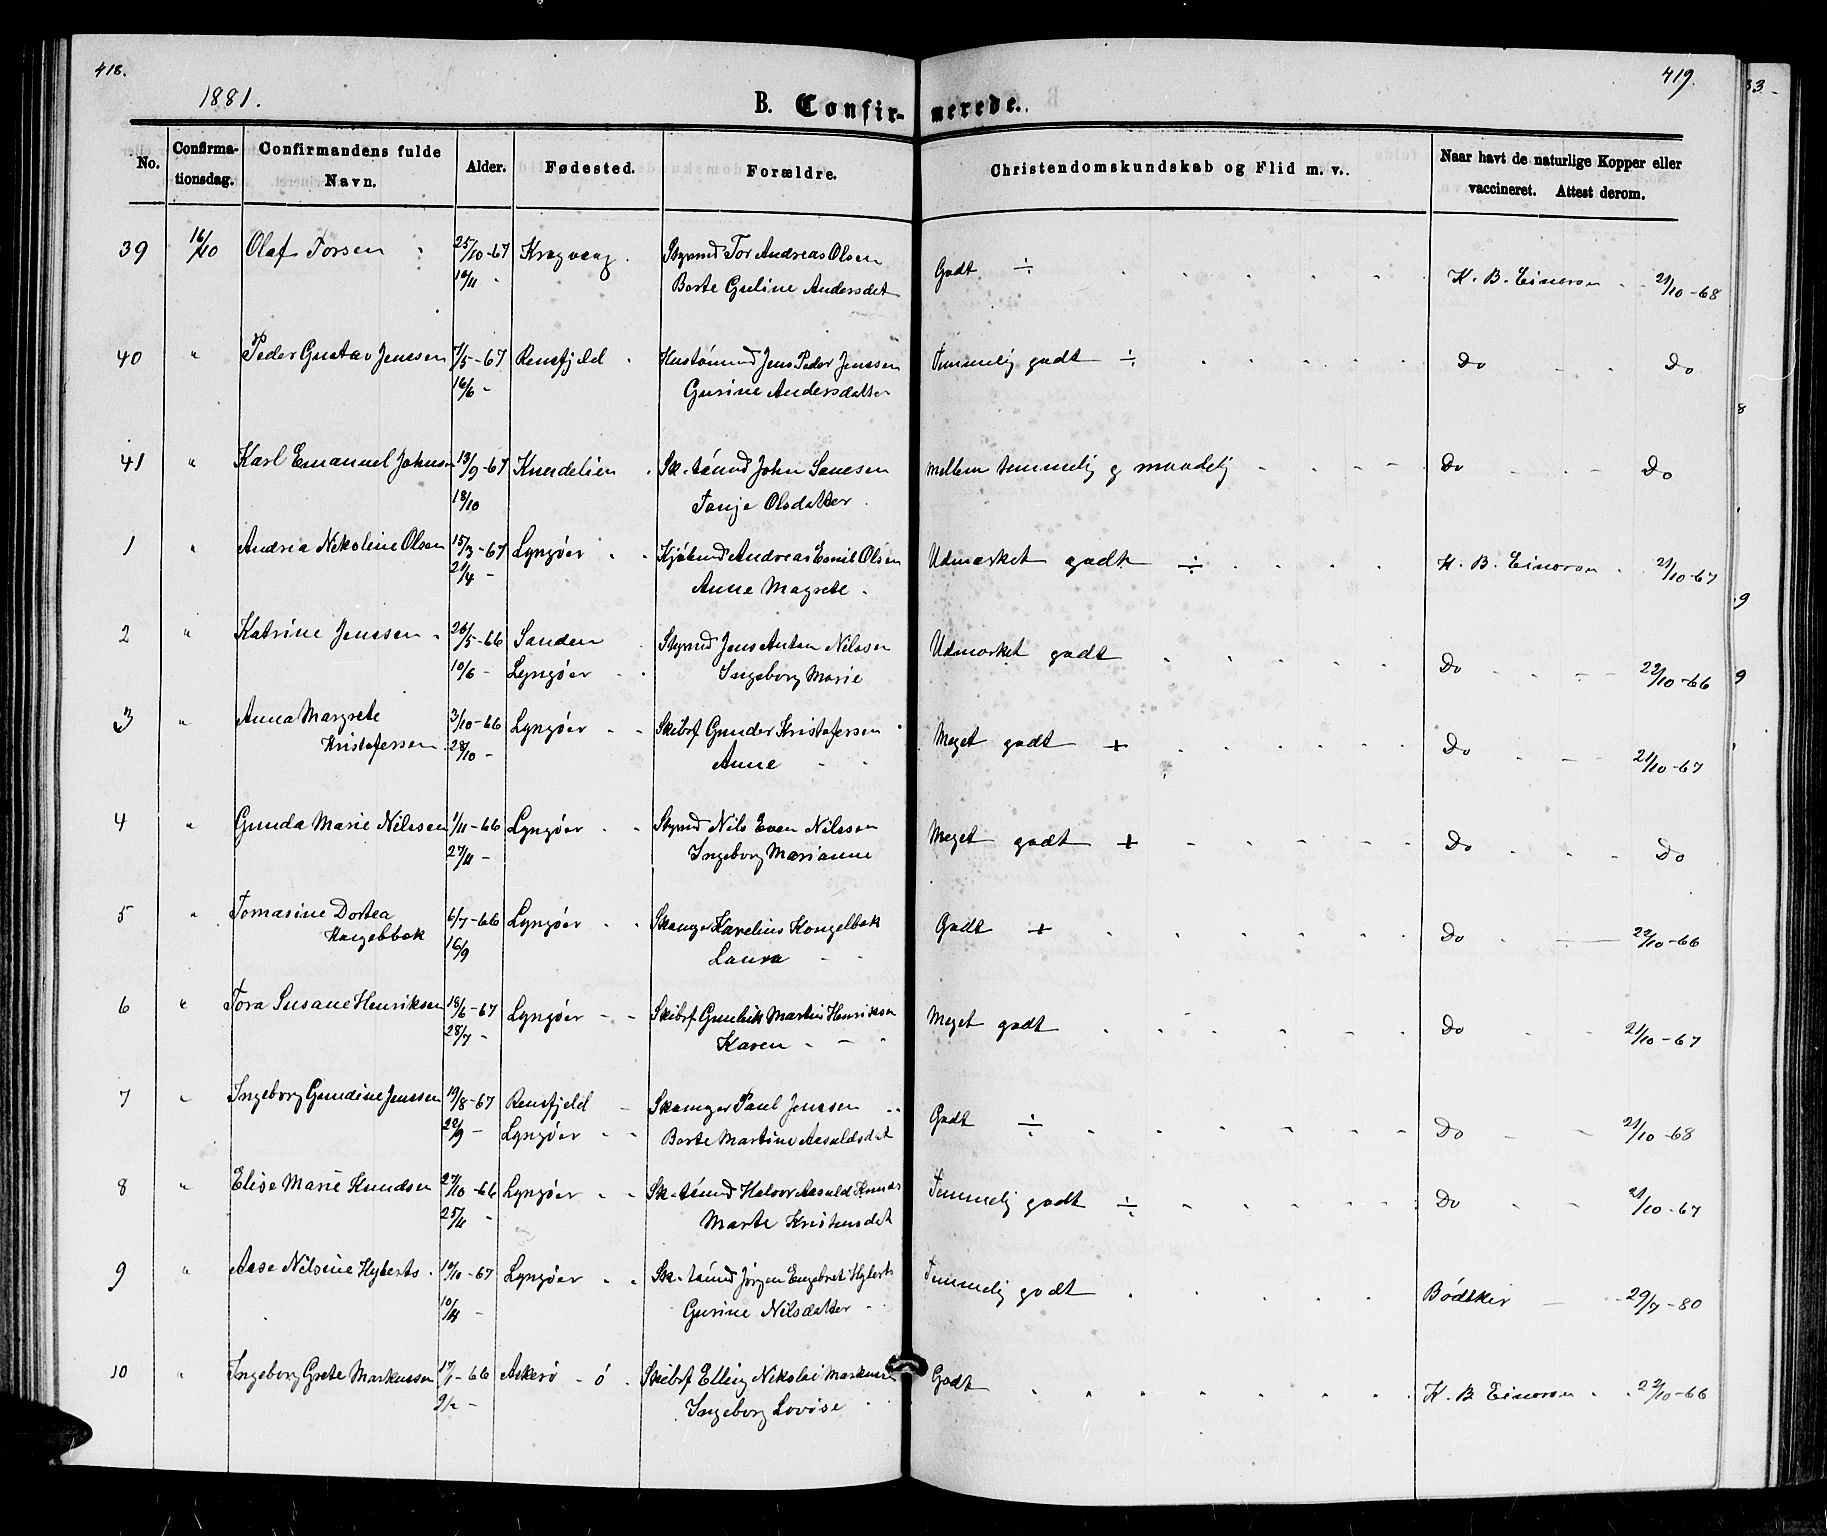 418.
419.
1881.
B. Confirmerede.
No.
Confirmationsdag.
Confirmandens fulde Navn.
Alder.
Fødested.
Forældre.
Christendomskundskab og Flid m. v.
Naar havt de naturlige Kopper eller vaccineret. Attest derom.
39 16/10 Olaf Torsen 25/10-67 Kragvaag Styrmd Tor Andreas Olsen Godt ÷ H. B. Einerson 21/10-68
10/11 - Berte Guline Andersdet
40 " Peder Gustav Jenssen 7/5-67 Rensfjeld Hustømmd Jens Peder Jenssen Temmelig godt ÷ Do Do
16/6 - Gurine Andersdatter
41 " Karl Emanuel Johnsen 13/9-67 Knerdelien Sk.tømmd John mellem temmelig og maadelig Do Do
13/10 Tonje Olsdatter
1 " Andrea Nikoline Olsen 15/3-67 Lyngøer Kjøbmd Andreas Emil Olsen Udmærket godt ÷ H. B. Einerson 21/10-67
21/4 - Anne Magrete
2 " Katrine Jenssen 26/5-66 Sanden Styrmd Jens Anton Nilssen Udmærket godt Do 22/10-66
10/6 - Lyngøer Ingeborg Marie
3 " Anna Margrete 3/10-66 Lyngøer Skibsf Gunder Kristofersen Meget godt + Do 21/10-67
Kristofersen 28/10 - Anne
4 " Gunda Marie Nilssen 1/11-66 Lyngøer Styrmd Nils Even Nilssen Meget godt + Do Do
27/11 - Ingeborg Marianne
5 " Tomasine Dortea 6/7-66 Lyngøer Karelius Kongelbæk Godt + Do 22/10-66
16/9 Laura
6 " Tora Susane Henriksen 18/6-67 Lyngøer Skibsf Martin Henriksen Meget godt Do 21/10-67
28/7 - Karen
7 " Ingeborg Gundine Jenssen 19/8-67 Rensfjeld Paul Jenssen Godt ÷ Do 21/10-68
22/9 - Lyngøer Berte Martine Aasuldsdet
8 " Elise Marie Knudsen 27/10-66 Lyngøer Sk.tømmd Halvor Aasuld Knuds Temmelig godt ÷ Do 21/10-67
25/11 - Marte Kristensdet
9 " Aase Nilsine Hyberts 10/10-67 Lyngøer Sk.tømmd Jørgen Engebret Hyberts Temmelig godt Bødtker 29/7-80
10/11 - Gurine Nilsdatter
10 " Ingeborg Grete Markussen 17/1-66 Askerø - ö Skibsf Elling Nikolai Markussen Godt H. B. Einerson 22/10-66
9/2 - Ingeborg Lovise